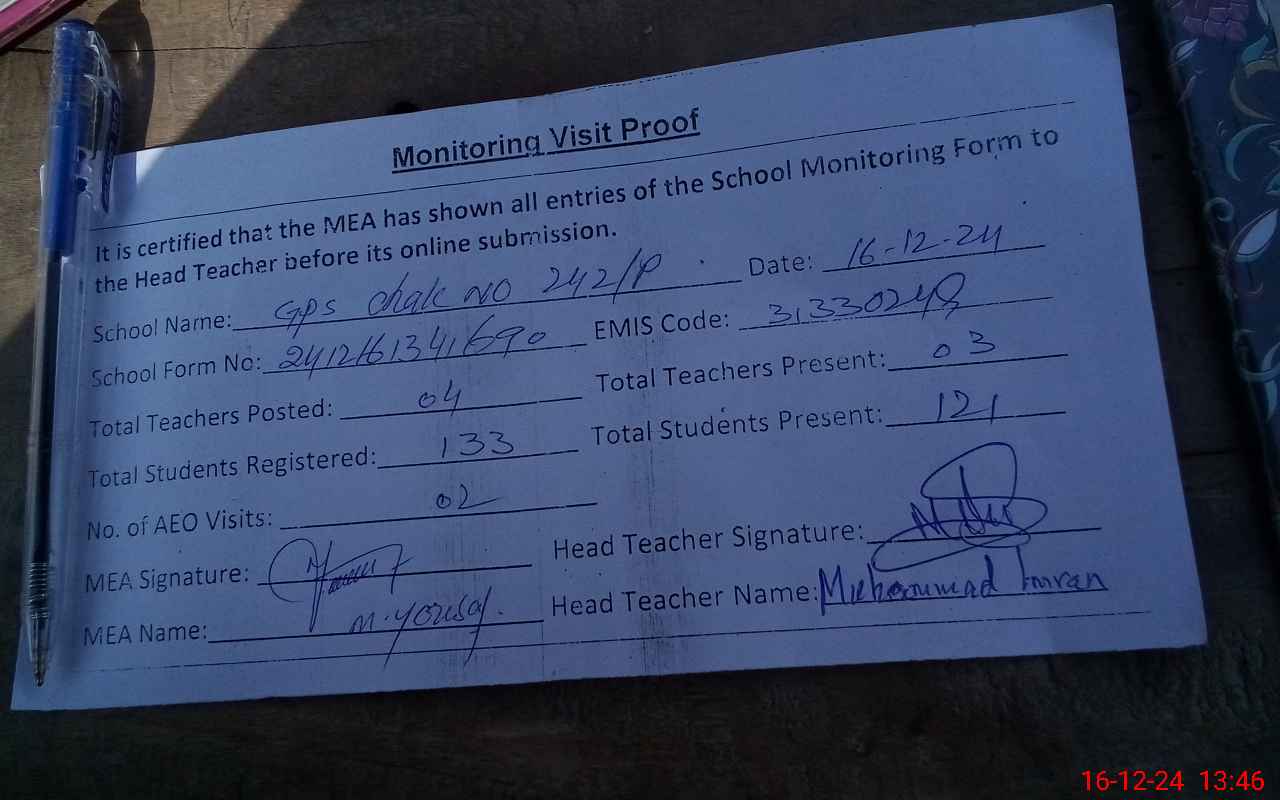 Monitoring Visit Proof
It is certified that the MEA has shown all entries of the School Monitoring Form to
the Head Teacher before its online submission.
School Name: GPS Chak NO 242/P. Date: 16-12-24
School Form No: 2412161341690 EMIS Code: 31330248
Total Teachers Posted: 04 Total Teachers Present: 03
Total Students Registered: 133 Total Students Present: 121
No. of AEO Visits: 02
MEA Signature: Head Teacher Signature:
MEA Name: M. Yousaf. Head Teacher Name: Muhammad Imran
16-12-24 13:46